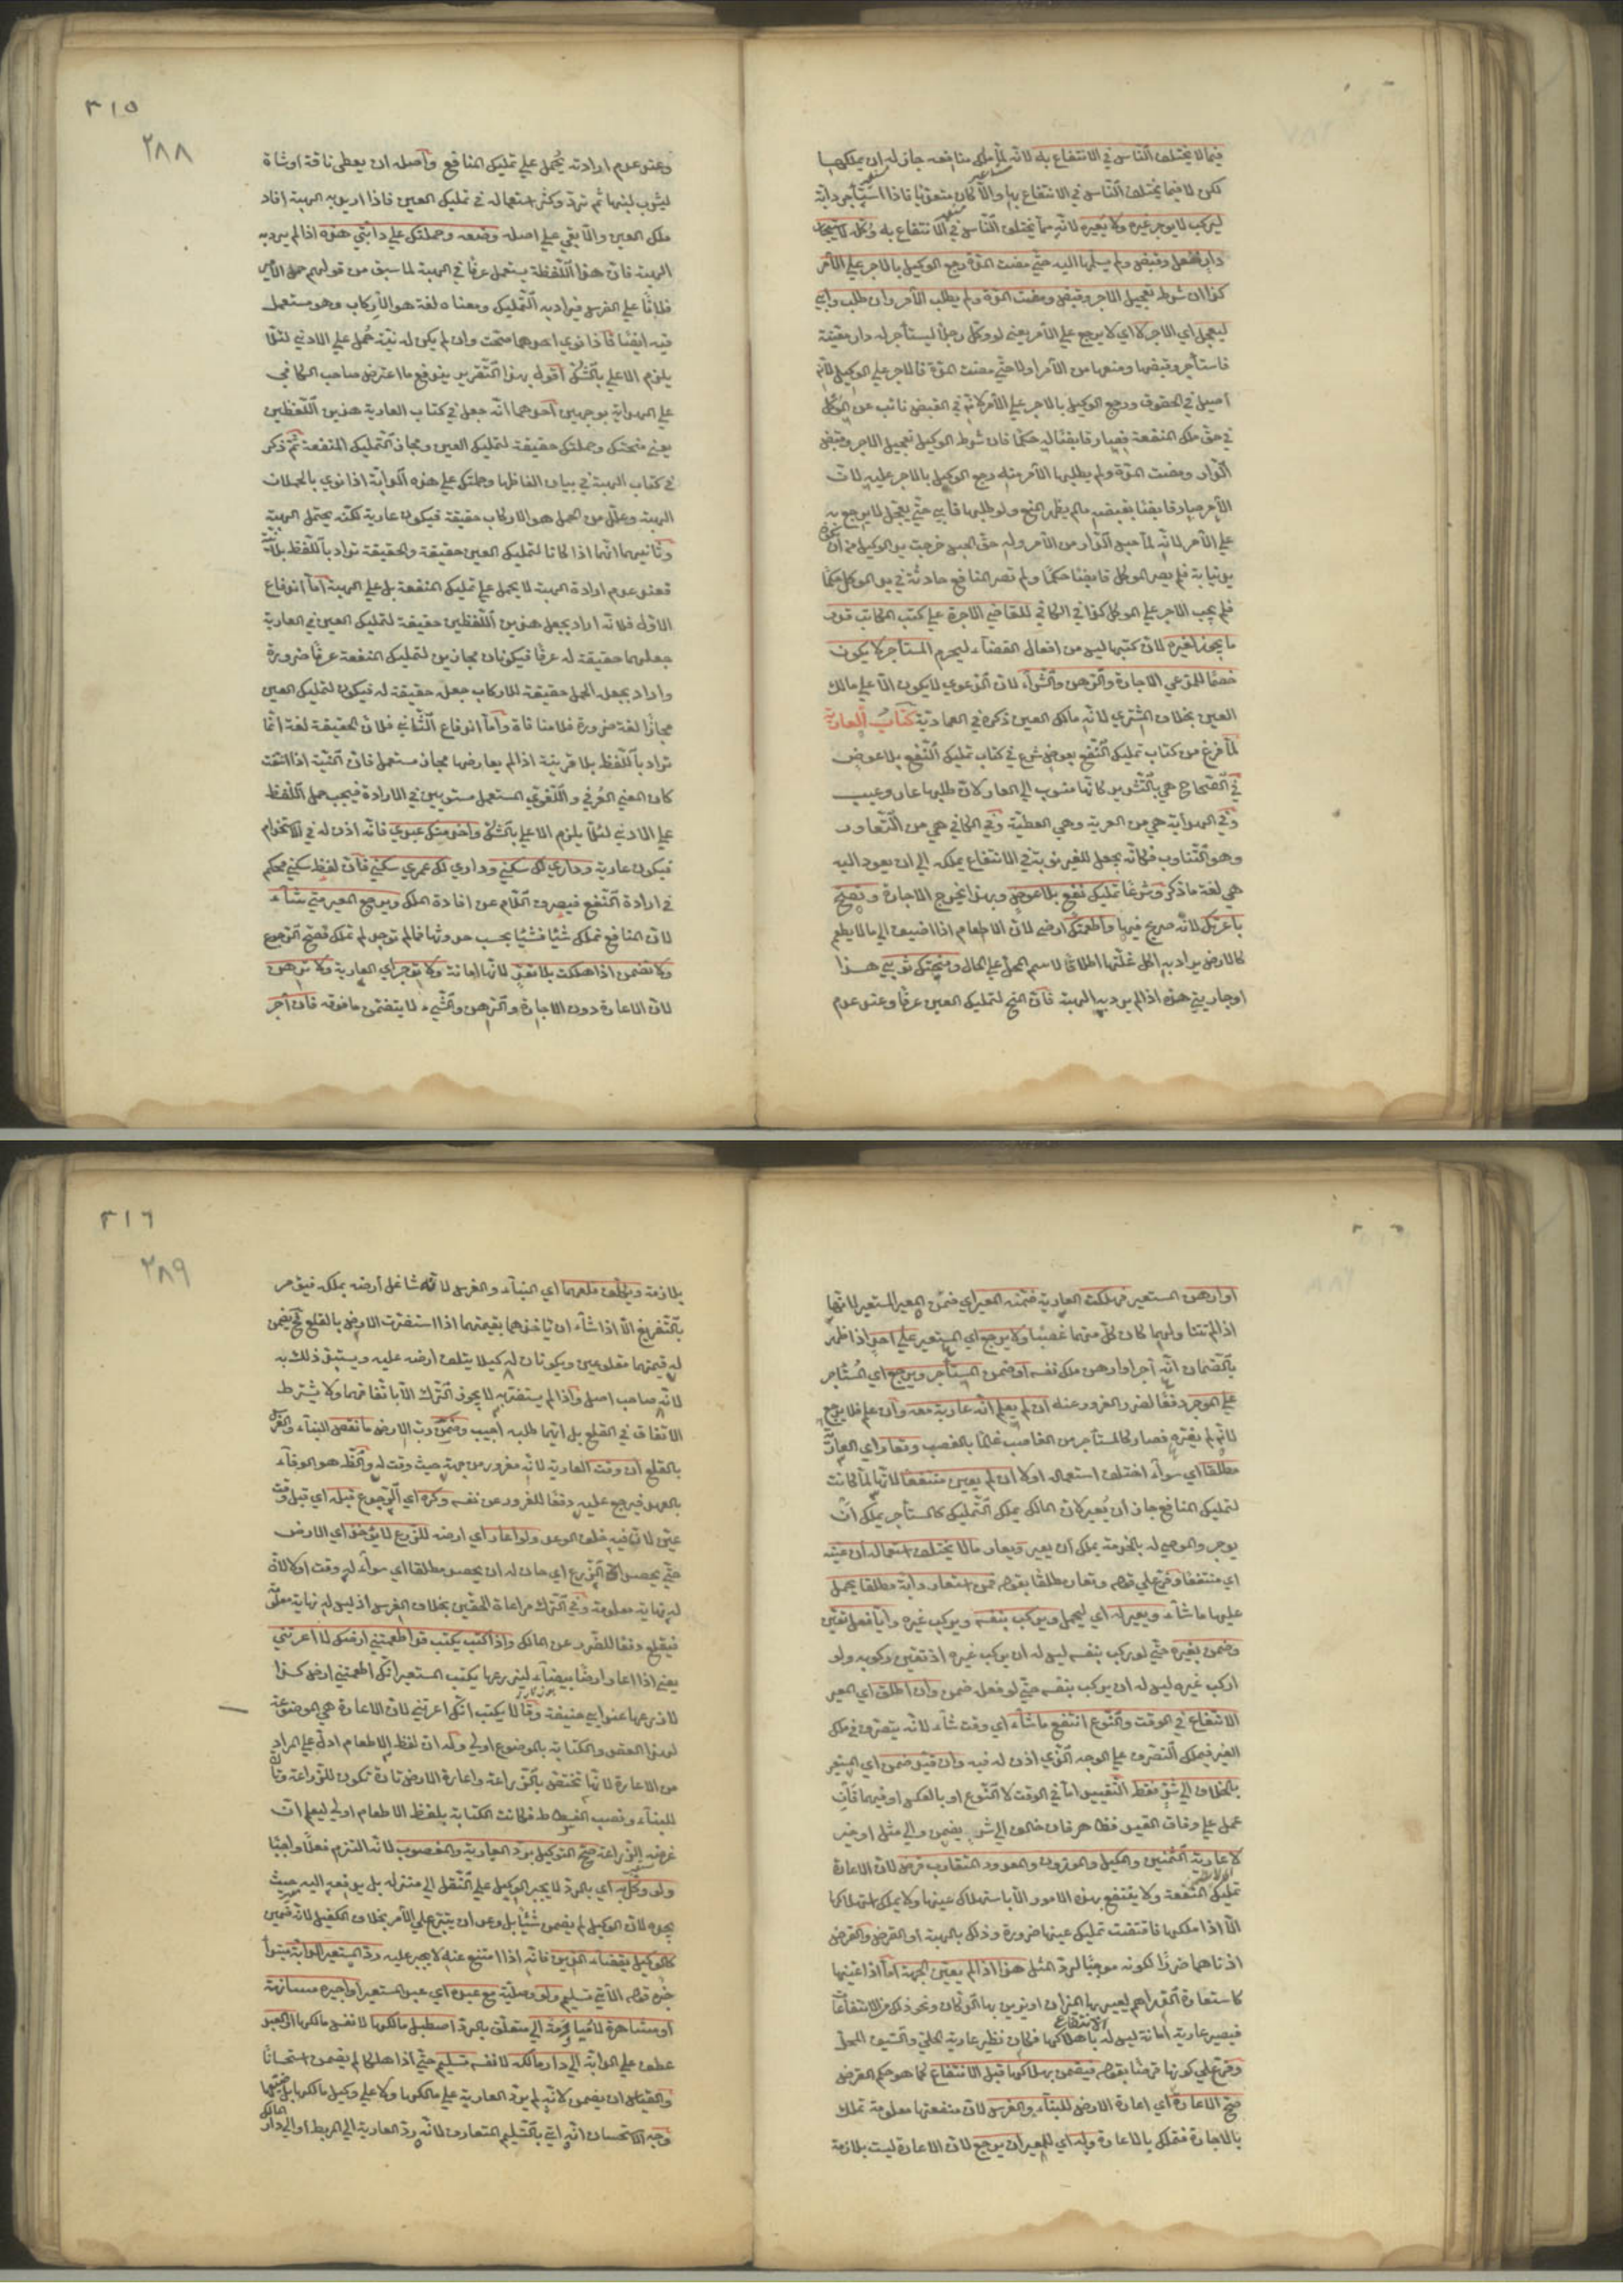 فيما لا يختلف الناس في الانتفاع به لانه لما ملك منافعه جاز له ان يملكها
لكن لا فيما يختلف الناس في الانتفاع بها والا كان متعديا فاذا استأجر دابة
ليركب لا يوجر غيره ولا يعيره لانه مما يختلف الناس في الانتفاع به وكله لاستيجار
دار ففعل وقبض ولم يسلمها اليه حتى مضت المدة رجع الوكيل بالاجر على الآمر
كذا ان شرط تعجيل الاجر وقبض ومضت المدة ولم يطلب الآمر وان طلب وابى
ليعجل اي الاجر لا اي لا يرجع على الآمر يعني لو وكل رجلا ليستأجر له دار معينة
فاستأجر وقبضها ومنعها من الآمر اولا حتى مضت المدة فالاجر على الوكيل لانه
اصيل في الحقوق ورجع الوكيل بالاجر على الآمر لانه في القبض نائب عن الموكل
في حق ملك المنفعة فصار قابضا له حكما فان شرط الوكيل تعجيل الاجر وقبض
الدار ومضت المدة ولم يطلبها الآمر منه رجع الوكيل بالاجر عليه لان
الآمر صار قابضا بقبضه مالم يظهر المنع ولو طلبها فابى حتى يعجل لا يرجع به
على الآمر لانه لما حبس الدار من الآمر وله حق الحبس خرجت يد الوكيل من ان تكون
يد نيابة فلم يصر الموكل قابضا حكما ولم تصر المنافع حادثة في يد الموكل حكما
فلم يجب الاجر على الموكل كذا في الكافي للقاضي الاجرة على كتب المكاتب قدر
ما يجوز لغيره لان كتبها ليس من افعال القضاء ليحرم المستأجر لا يكون
خصما لمدعي الاجارة والرهن والشراء لان الدعوى لا يكون الا على مالك
العين بخلاف المشتري لانه مالك العين ذكره في العمادية كتاب العارية
لما فرغ من كتاب تمليك النفع بعوض شرع في كتاب تمليك النفع بلا عوض
في الصحاح هي بالتشديد كانها منسوب الى العار لان طلبها عار وعيب
وفي الهداية هي من العرية وهي العطية وفي الكافي هي من التعاور
وهو التناوب فكانه يجعل للغير نوبة في الانتفاع بملكه الى ان يعود اليه
هي لغة ما ذكر وشرعا تمليك نفع بلا عوض وبهذا يخرج الاجارة وتصح
باعرتك لانه صريح فيها واطعمتك ارضي لان الاطعام اذا اضيف الى ما لا يطعم
كالارض يراد به اكل غلتها اطلاقا لاسم المحل على الحال ومنحتك ثوبي هذا
او جاريتي هذه اذا لم يرد به الهبة فان المنح لتمليك العين عرفا وعند عدم
٣١٥
٢٨٨
وعند عدم ارادته يحمل على تمليك المنافع واصله ان يعطي ناقة او شاة
ليشرب لبنها ثم ترد وكثر استعماله في تمليك العين فاذا اريد به الهبة افاد
ملك العين والا بقي على اصله وضعه وحملتك على دابتي هذه اذا لم يرد به
الهبة فان هذا اللفظة يستعمل عرفا في الهبة لما سبق من قولهم حمل الامير
فلانا على الفرس فيراد به التمليك ومعناه لغة هو الاركاب وهو مستعمل
فيه ايضا فاذا نوى احدهما صحت وان لم يكن له نية حمل على الادنى لئلا
يلزم الاعلى بالشك اقول بهذا التقرير يندفع ما اعترض صاحب الكافي
على الهداية بوجهين احدهما انه جعل في كتاب العارية هذين اللفظين
يعني منحتك وحملتك حقيقة لتمليك العين ومجاز التمليك المنفعة ثم ذكر
في كتاب الهبة في بيان الفاظها وحملتك على هذه الدابة اذا نوى بالحملان
الهبة وعلل من الحمل هو الاركاب حقيقة فيكون عارية لكنه يحتمل الهبة
وثانيهما انهما اذا كانا لتمليك العين حقيقة والحقيقة تراد باللفظ بلا نية
فعند عدم ارادة الهبة لا يحمل على تمليك المنفعة بل على الهبة اما اندفاع
الاول فلانه اراد بجعل هذين اللفظين حقيقة لتمليك العين في العارية
جعلهما حقيقة له عرفا فيكونان مجازين لتمليك المنفعة عرفا ضرورة
واراد بجعل الحمل حقيقة للاركاب جعله حقيقة له فيكون لتمليك العين
مجازا لغة ضرورة فلا منافاة واما اندفاع الثاني فلان الحقيقة لغة انما
تراد باللفظ بلا قرينة اذا لم يعارضها مجاز مستعمل فان النية اذا انتفت
كان المعنى العرفي واللغوي المستعمل مستويين في الارادة فيجب حمل اللفظ
على الادنى لئلا يلزم الاعلى بالشك واخدمتك عبدي فانه اذن له في الاستخدام
فيكون عارية وداري لك سكنى وداري لك عمري سكنى فان لفظ سكنى محكم
في ارادة النفع فيصرف اللام عن افادة الملك ويرجع المعير متى شاء
لان المنافع تملك شيئا فشيئا بحسب حدوثها فمالم توجد لم تملك فصح الرجوع
ولا تضمن اذا هلكت بلا تعد لانها امانة ولا توجر اي العارية ولا ترهن
لان الاعارة دون الاجارة والرهن والشيء لا يتضمن ما فوقه فان آجر
او ارهن المستعير فهلكت العارية ضمنه المعير اي ضمن المعير المستعير لانها
اذا لم تتناولهما كان كل منهما غصبا ولا يرجع اي المستعير على احد اذا ظهر
بالضمان انه آجر او ارهن ملك نفسه او ضمن المستأجر ويرجع اي المستأجر
على الموجر دفعا لضرر الغرور عنه ان لم يعلم انه عارية معه وان علم فلا يرجع
لانه لم يغره فصار كالمستأجر من الغاصب عالما بالغصب وتعار اي العارية
مطلقا اي سواء اختلف استعماله اولا ان لم يعين منتفعا لانها لما كانت
لتمليك المنافع جاز ان يعير لان المالك يملك التمليك كالمستأجر يملك ان
يوجر والموصى له بالخدمة يملك ان يعير ويعار مالا يختلف استعماله ان عينه
اي منتفعا وفرع على قوله وتعار مطلقا بقوله فمن استعار دابة مطلقا يحمل
عليها ما شاء ويعير له اي ليحمل ويركب بنفسه ويركب غيره وايا فعل تعين
وضمن بغيره حتى لو ركب بنفسه ليس له ان يركب غيره اذ تعين ركوبه ولو
اركب غيره ليس له ان يركب بنفسه حتى لو فعل ضمن وان اطلق اي المعير
الانتفاع في الوقت والنوع انتفع ما شاء اي وقت شاء لانه يتصرف في ملك
الغير فيملك التصرف على الوجه الذي اذن له فيه وان قيد ضمن اي المستعير
بالخلاف الى شر فقط التقييد اما في الوقت لا النوع او بالعكس او فيهما فان
عمل على وفاق القيد فظاهر فان خالف الى شر يضمن والى مثل او خير
لا عارية الثمنين والمكيل والموزون والمعدود المتقارب قرض لان الاعارة
تمليك المنفعة ولا ينتفع بهذه الامور الا باستهلاك عينها ولا يملك استهلاكها
الا اذا ملكها فاقتضت تمليك عينها ضرورة وذلك بالهبة او القرض والقرض
ادناهما ضررا لكونه موجبا لرد المثل هذا اذا لم يعين الجهة اما اذا عينها
كاستعارة الدراهم ليعير بها الميزان او يزين بها الدكان ونحو ذلك من الانتفاعات
فيصير عارية امانة ليس له الانتفاع باهلاكها فكان نظير عارية الحلي والسيف المحلى
وفرع على كونها قرضا بقوله فيضمن بهلاكها قبل الانتفاع كما هو حكم القرض
صح الاعارة اي اعارة الارض للبناء والغرس لان منفعتها معلومة تملك
بالاجارة فتملك بالاعارة وله اي للمعير ان يرجع لان الاعارة ليست بلازمة
٣١٦
٢٨٩
بلازمة ويكلف قلعهما اي البناء والغرس لانه شاغل ارضه بملكه فيؤمر
بالتفريغ الا اذا شاء ان يأخذهما بقيمتهما اذا استضرت الارض بالقلع فح يضمن
له قيمتهما مقلوعين ويكونان له كيلا يتلف ارضه عليه ويستبد ذلك به
لانه صاحب اصل واذا لم يستضر به لا يجوز الترك الا باتفاقهما ولا يشترط
الاتفاق في القلع بل ايهما طلبه اجيب وضمن رب الارض ما نقص البناء والغرس
بالقلع ان وقت العارية لانه مغرور من جهته حيث وقت له والظاهر هو الوفاء
بالعهد فيرجع عليه دفعا للغرور عن نفسه وكره اي الرجوع قبله اي قبل وقت
عين لان فيه خلف الوعد ولو اعار اي ارضه للزرع لا يؤخذ اي الارض
حتى يحصد الزرع اي حان له ان يحصد مطلقا اي سواء له وقت اولا لان
له نهاية معلومة وفي الترك مراعاة الحقين بخلاف الغرس اذ ليس له نهاية معلومة
فيقلع دفعا للضرر عن المالك واذا كتب يكتب قد اطعمتني ارضك لا اعرتني
يعني اذا اعار ارضا بيضاء ليزرعها يكتب المستعير انك اطعمتني ارض كذا
لازرعها عند ابي حنيفة وقالا يكتب انك اعرتني لان الاعارة هي الموضوعة
لهذا العقد والكتابة بالموضوع اولى وله ان لفظ الاطعام ادل على المراد
من الاعارة لانها تختص بالزراعة واعارة الارض تارة تكون للزراعة وتارة
للبناء ونصب الفسطاط فكانت الكتابة بلفظ الاطعام اولى ليعلم ان
غرضه الزراعة صح التوكيل برد العارية والمغصوب لانه التزم فعلا واجبا
ولو وكل به اي بالرد لا يجبر الوكيل على النقل الى منزله بل يدفعه اليه حيث
يجده لان الوكيل لم يضمن شيئا بل وعد ان يتبرع على الآمر بخلاف الكفيل لانه ضمين
كالوكيل بقضاء الدين فانه اذا امتنع عنه لا يجبر عليه رد المستعير الدابة مبتدأ
خبره قوله الآتي تسليم ولو وصلية مع عبده اي عبد المستعير او اجيره مسانهة
او مشاهرة لا مياومة الى متعلق بالرد اصطبل مالكها لا نفس مالكها او العبد
عطف على الدابة الى دار مالكه لا نفسه تسليم حتى اذا هلكا لم يضمن استحسانا
والقياس ان يضمن لانه لم يرد العارية على مالكها ولا على وكيل مالكها بل ضيعها
وجه الاستحسان انه اتى بالتسليم المتعارف لانه رد العارية الى المربط او الى دار المالك